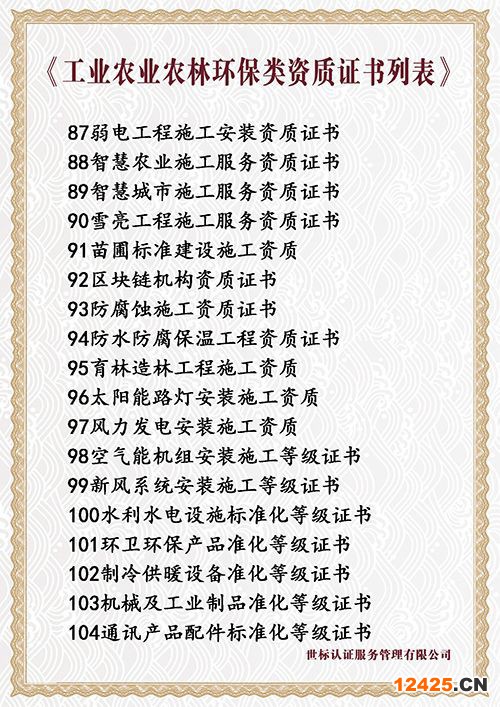 《工业农业农林环保类资质证书列表》
87弱电工程施工安装资质证书
88智慧农业施工服务资质证书
89智慧城市施工服务资质证书
90雪亮工程施工服务资质证书
91苗圃标准建设施工资质
92区块链机构资质证书
93防腐蚀施工资质证书
94防水防腐保温工程资质证书
95育林造林工程施工资质
96太阳能路灯安装施工资质
97风力发电安装施工资质
98空气能机组安装施工等级证书
99新风系统安装施工等级证书
100水利水电设施标准化等级证书
101环卫环保产品准化等级证书
102制冷供暖设备准化等级证书
103机械及工业制品准化等级证书
104通讯产品配件标准化等级证书
世标认证服务管理有限公司
12425.CN